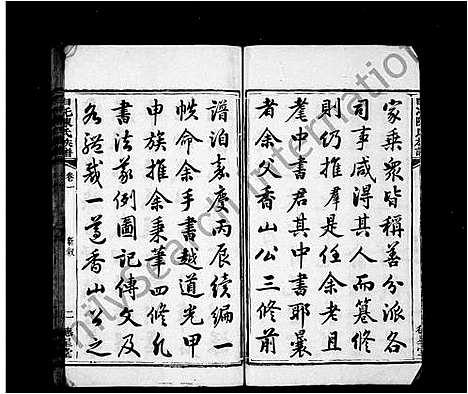 家乘衆皆稱善分派各
司事咸得其人而纂修
則仍推羣是任余老且
耄中書君其中書耶曩
者余父香山公三修前
譜洎嘉慶丙辰續編一
帙命余手書越道光甲
申族推余秉筆四修凡
書法義例圖記傳文及
各體裁一遵香山公之
氏族譜
卷一
二